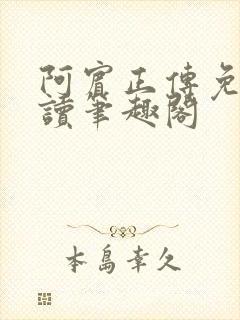 阿賓正傳免
讀筆趣閣
本島幸久